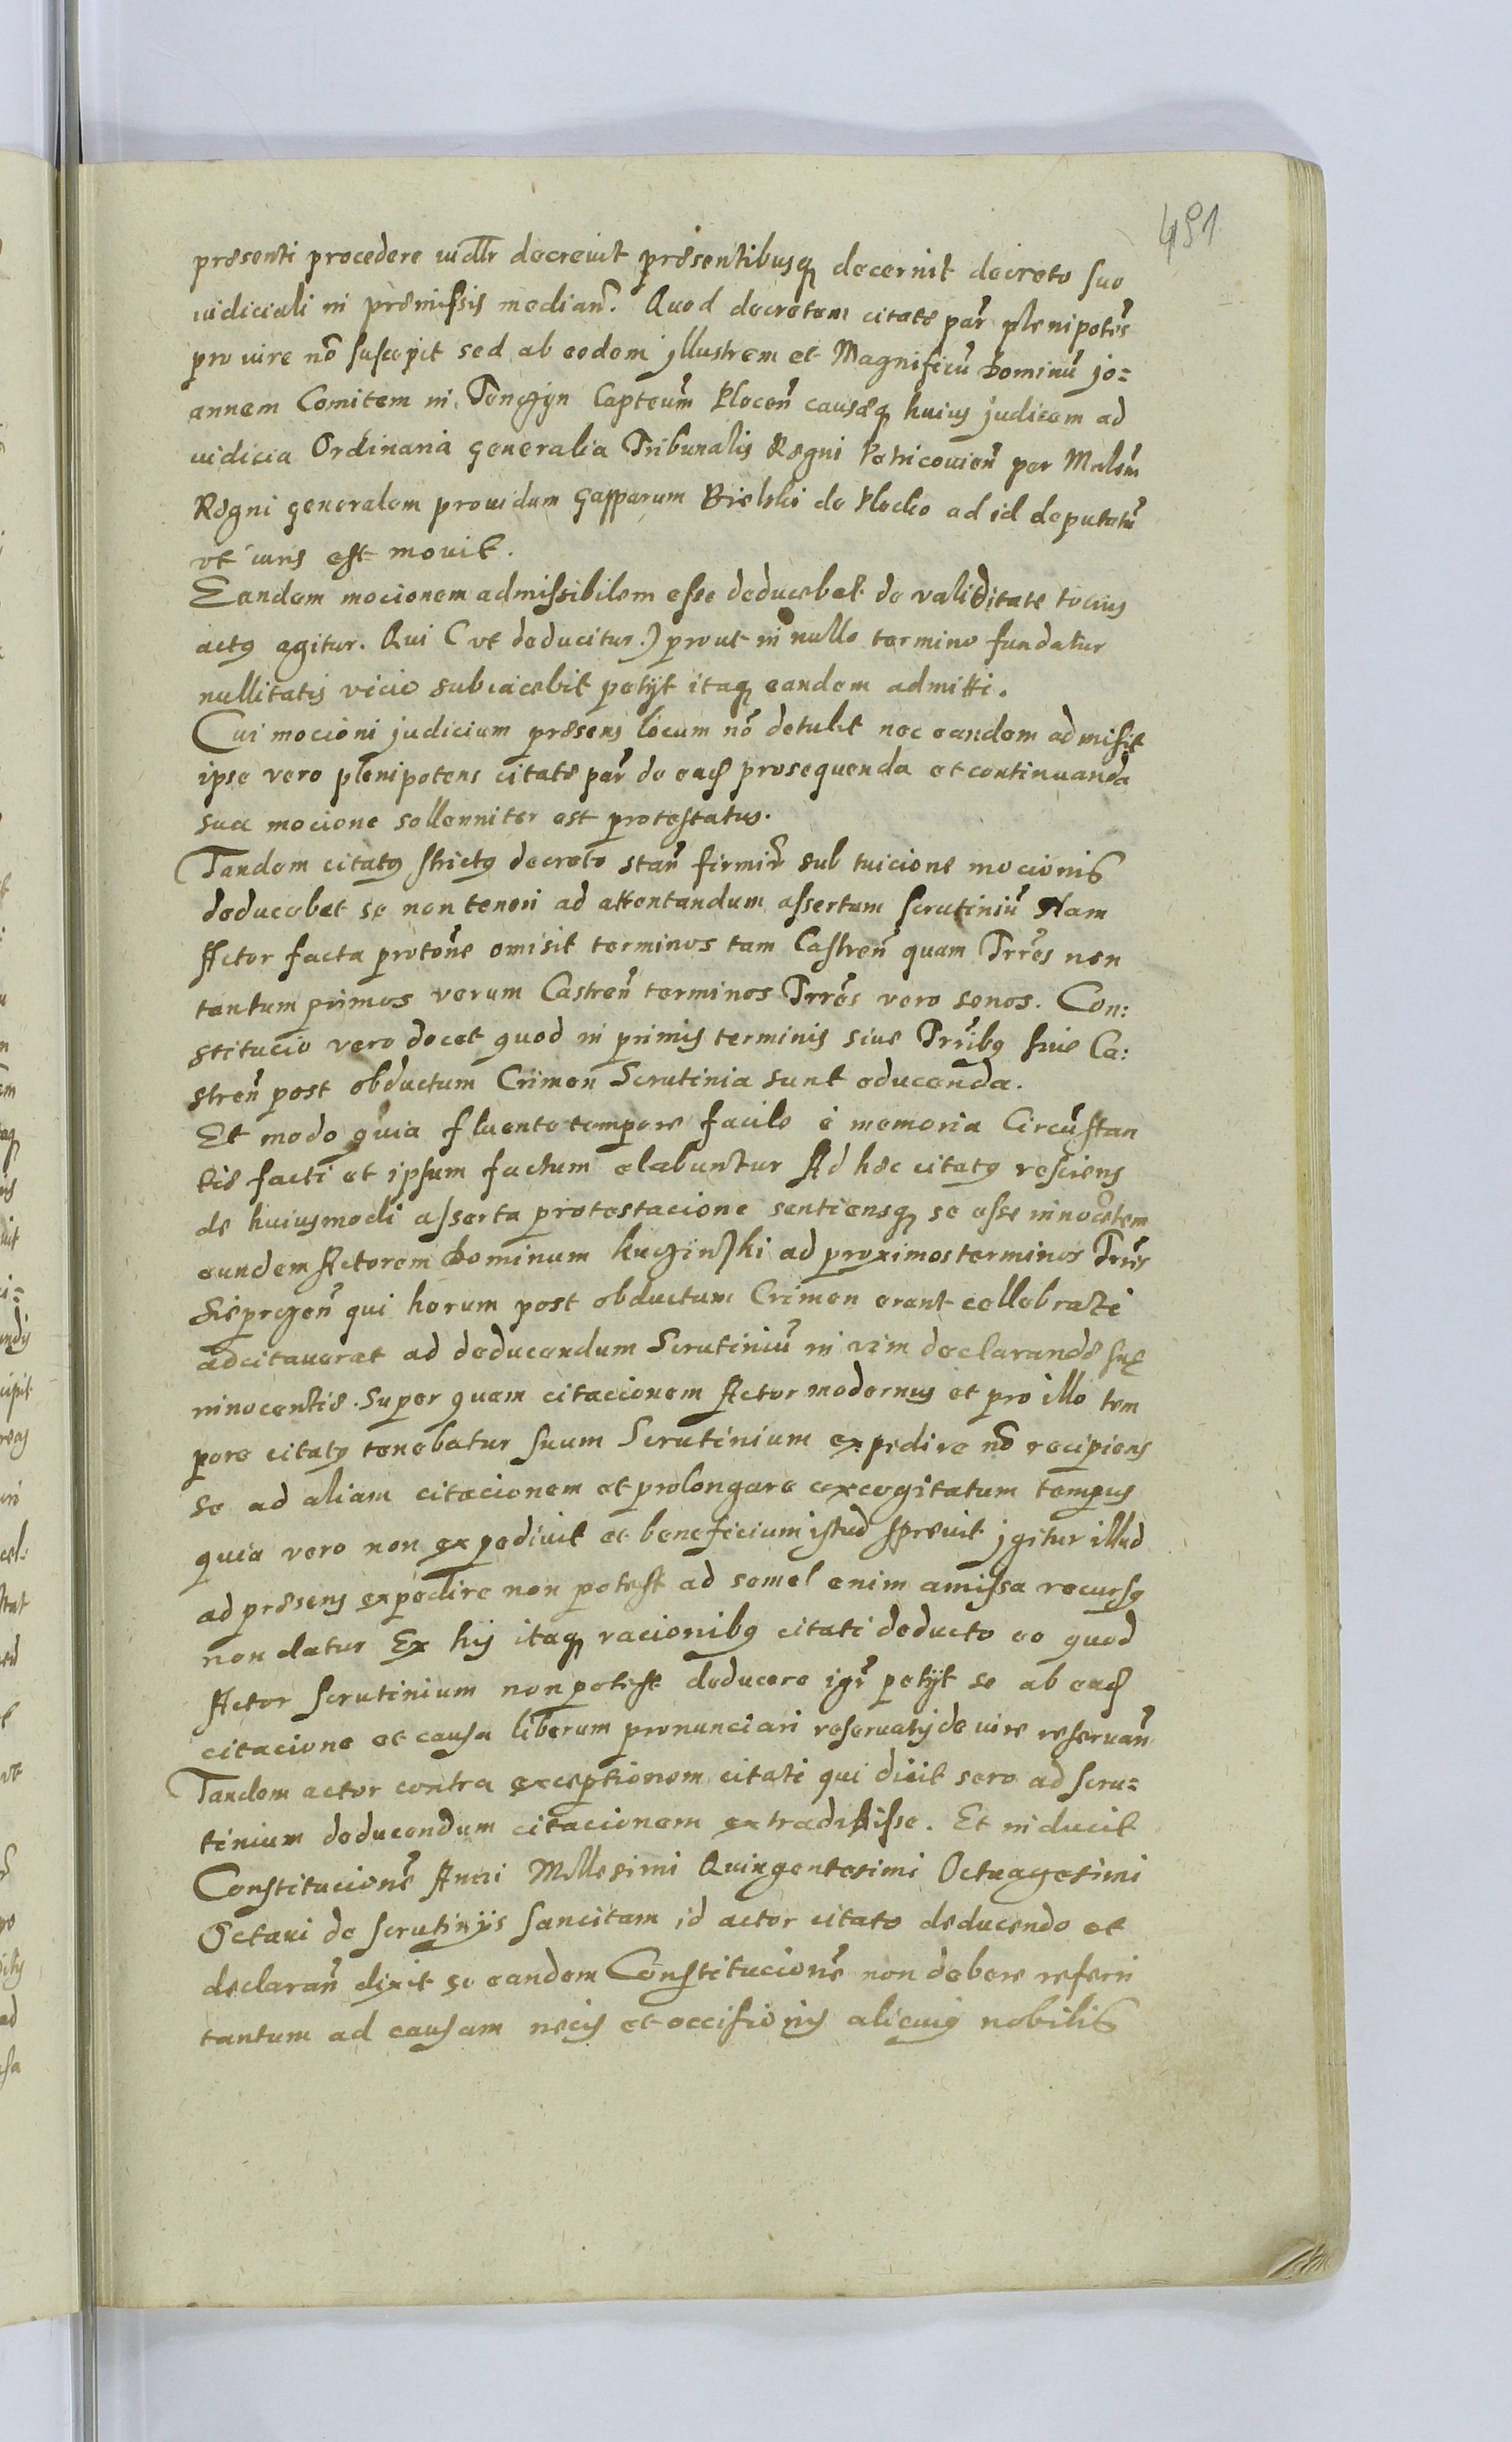 491
præsenti procedere iudłłr decreuit præsentibusq decernit decreto suo
iudiciali in præmissis median̄. Quod decretum citatæ par̄ plenipotēs
pro iure nō suscepit sed ab eodem jllustrem et Magnificū Dominū jo=
annem Comitem in Tenczyn Capteūm Plocen̄ causæq huius judicem ad
iudicia Ordinaria Generalia Tribunalis Regni Petricouien̄ per Mnlem̄
Regni generalem prouidum Gasparum Bielski de Plocko ad id deputatū
vt iuris est mouit.
Eandem mocionem admissibilem esse deducebat de validitate tocius
actus agitur. Qui (vt deducitur.) prout in nullo termino fundatur
nullitatis vicio subiacebit petijt itaq eandem admitti.
Cui mocioni judicium præsens locum nō detulit nec eandem admisit
ipse vero plenipotens citatæ par̄ de eadē prosequenda et continuanda
sua mocione sollenniter est protestatus.
Tandem citatus strictus decreto stan̄ firmir̄ sub tuicione mocionis
deducebat se non teneri ad attentandum assertum scrutiniū Nam
Actor facta protōne omisit terminos tam Castren̄ quam Trrēs non
tantum primos verum Castren̄ terminos Trrēs vero senos. Con:
stitucio vero docet quod in primis terminis siue Trrībus siue Ca:
stren̄ post obductum Crimen Scrutinia sunt educenda.
Et modo quia fluente tempore facile è memoria Circūstan
tiæ facti et ipsum factum elabuntur Ad hæc citatus resciens
de huiusmodi asserta protestacione sentiensq se esse innocētem
eundem Actorem Dominum Kuczinski ad proximos terminos Trrēs
Sieprczen̄ qui horum post obductum Crimen erant cellebrati
adcitauerat ad deducendum Scrutiniū in vim declarandæ suę
innocentiæ. Super quam citacionem Actor modernus et pro illo tem
pore citatus tenebatur suum Scrutinium expedire nō recipiens
se ad aliam citacionem et prolongare excogitatum tempus
quia vero non expediuit et beneficium istud spreuit jgitur illud
ad præsens expedire non potest ad semel enim amissa recursus
non datur Ex his itaq racionibus citati deducto eo quod
Actor scrutinium non potest deducere igr̄ petijt se ab eadē
citacione et causa liberum pronunciari reseruatis de iure reseruan̄
Tandem actor contra exceptionem citati qui dicit sero ad scru=
tinium deducendum citacionem extradidisse. Et inducit
Constitucionē Anni Millesimi Quingentesimi Octuagesimi
Octaui de scrutinijs sancitam id actor citato deducendo et
declaran̄ dixit se eandem Constitucionē non debere referri
tantum ad causam necis et occisionis alicuius nobilis